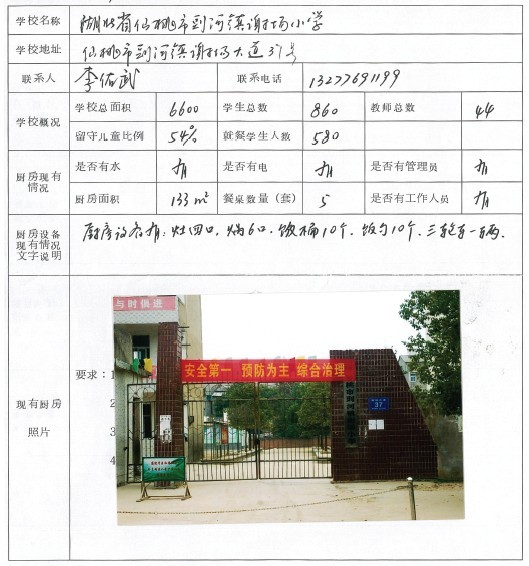 学校名称 湖北省仙桃市剅河镇谢场小学
学校地址 仙桃市剅河镇谢场大道37号
联系人 李佑武 联系电话 13277691199
学校概况 学校总面积 6600 学生总数 860 教师总数 44
留守儿童比例 54% 就餐学生人数 580
厨房现有情况 是否有水 有 是否有电 有 是否有管理员 有
厨房面积 133m² 餐桌数量（套） 5 是否有工作人员 有
厨房设备现有情况文字说明 厨房设备有：灶四口，锅6口，饭桶10个，饭勺10个，三轮车一辆。
现有厨房照片
与时俱进
要求：1
安全第一 预防为主 综合治理
2
37
3
4